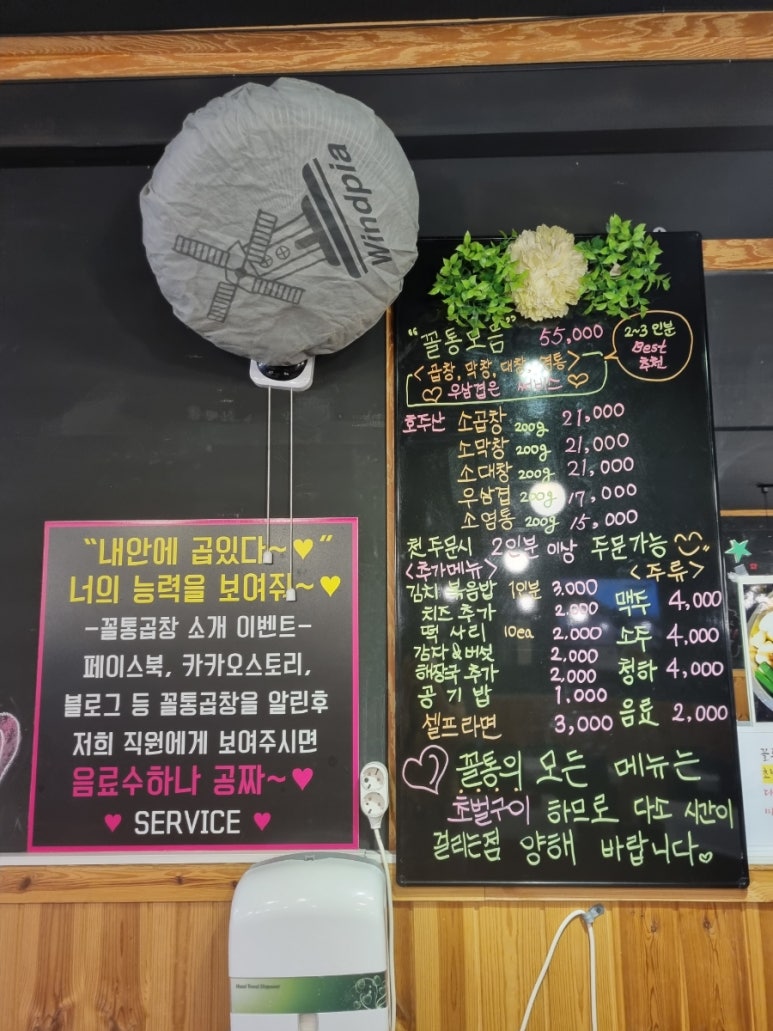 Windpia
"내안에 곱있다~♥"
너의 능력을 보여줘~♥
-꼴통곱창 소개 이벤트-
페이스북, 카카오스토리,
블로그 등 꼴통곱창을 알린후
저희 직원에게 보여주시면
음료수하나 공짜~♥
♥ SERVICE ♥
"꼴통모듬" 55,000
2~3 인분
Best
추천
<곱창, 막창, 대창, 염통>
♡ 우삼겹은 서비스 ♡
호주산 소곱창 200g 21,000
소막창 200g 21,000
소대창 200g 21,000
우삼겹 200g 17,000
소염통 200g 15,000
첫 주문시 2인분 이상 주문가능
<추가메뉴>
김치 볶음밥 1인분 3.000
치즈 추가 2.000
떡 사리 10ea 2.000
감자&버섯 2.000
해장국 추가 2,000
공기밥 1.000
셀프라면 3,000
<주류>
맥주 4,000
소주 4,000
청하 4,000
음료 2,000
♡ 꼴통의 모든 메뉴는
초벌구이 하므로 다소 시간이
걸리는점 양해 바랍니다♡
Hand Towel Dispenser